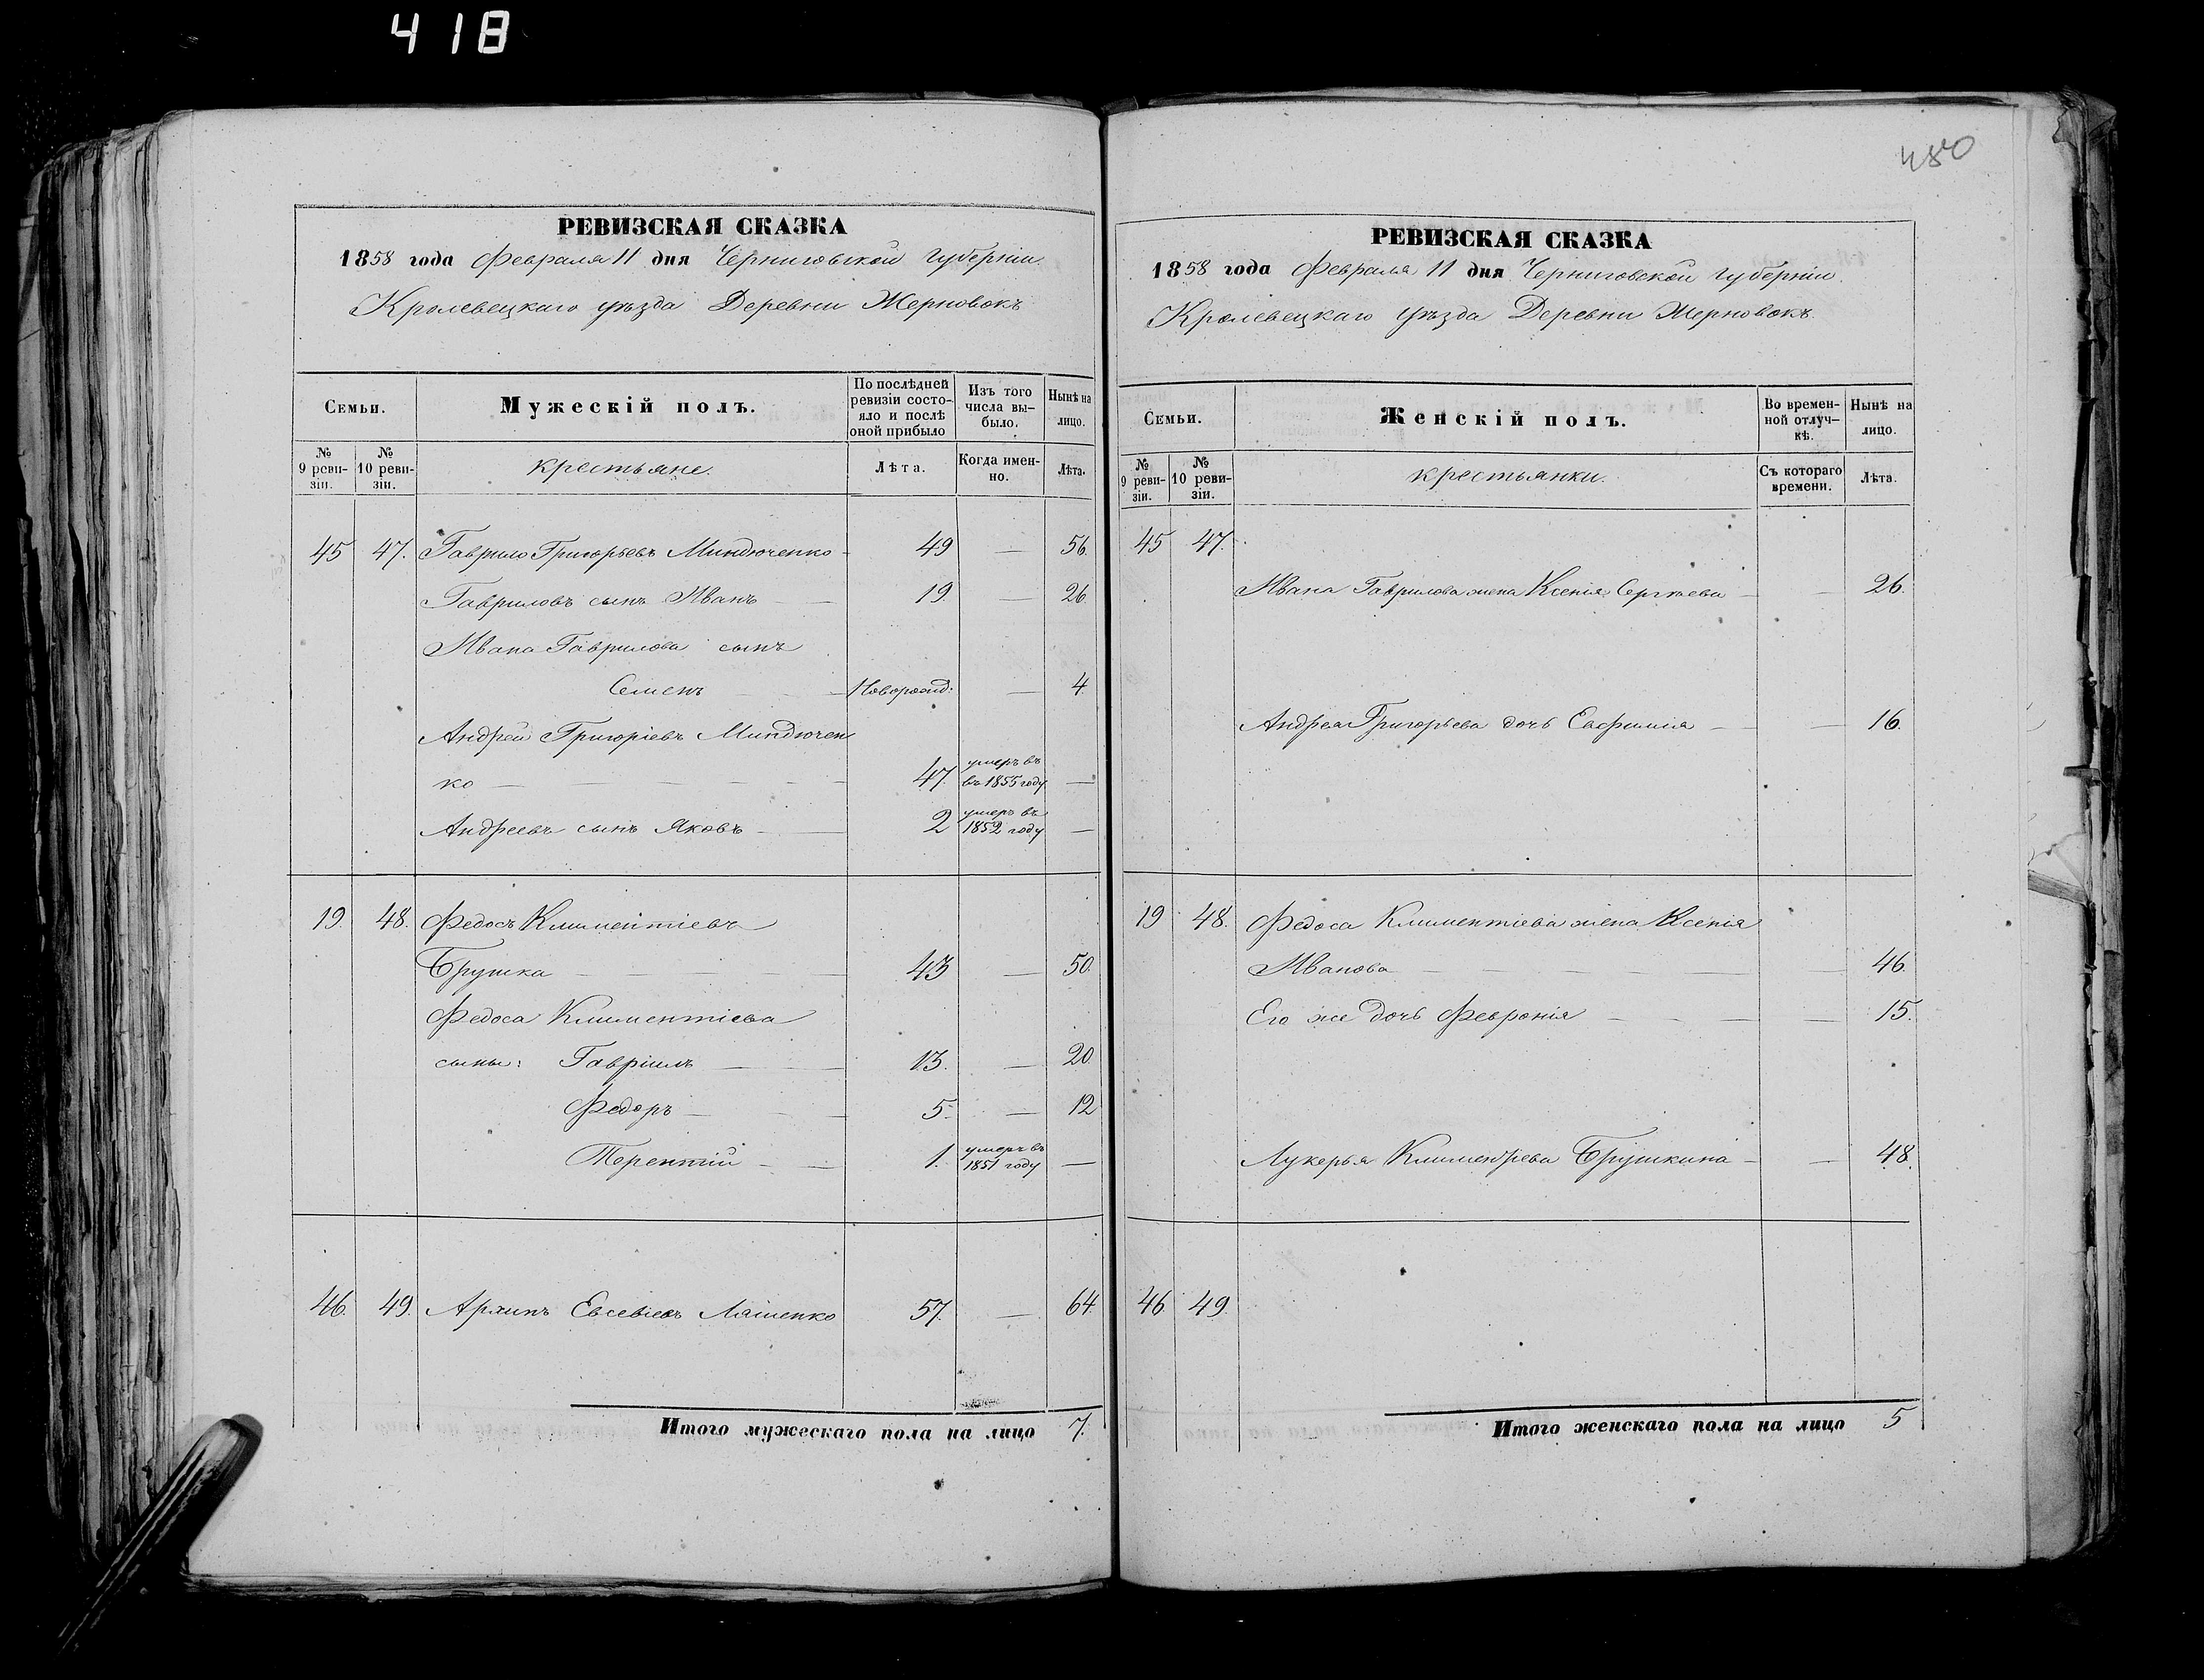 418
480
РЕВИЗСКАЯ СКАЗКА
1858 года Февраля 11 дня Черниговской Губерніи
Кролевецкаго уѣзда Деревни Жерновокъ
Семьи.
Мужескій полъ.
По послѣдней ревизіи состояло и послѣ оной прибыло
Изъ того числа выбыло.
Нынѣ на лицо.
№ 9 ревизіи.
№ 10 ревизіи.
крестьяне.
Лѣта.
Когда именно.
Лѣта.
45 47. Гаврило Григорьевъ Миндюченко - 49 — 56.
Гавриловъ сынъ Иванъ — 19 — 26.
Ивана Гаврилова сынъ
Семенъ — Новорожд: — 4
Андрей Григоріевъ Миндючен
ко — 47. умеръ въ въ 1855 году —
Андреевъ сынъ Яковъ — 2 умеръ въ 1852 году —
19. 48. Федосъ Климентіевъ
Брушка — 43 — 50.
Федоса Климентіева
сыны: Гавріилъ — 13. — 20
Федоръ — 5. — 12
Терентій — 1. умеръ въ 1851 году —
46. 49. Архипъ Евсевіевъ Ляшенко 57. — 64.
Итого мужескаго пола на лицо 7.
РЕВИЗСКАЯ СКАЗКА
1858 года Февраля 11 дня Черниговской Губерніи.
Кролевецкаго уѣзда Деревни Жерновокъ.
Семьи.
Женскій полъ.
Во временной отлучкѣ.
Нынѣ на лицо.
№ 9 ревизіи.
№ 10 ревизіи.
крестьянки.
Съ котораго времени.
Лѣта.
45 47.
Ивана Гаврилова жена Ксенія Сергѣева — — 26.
Андрея Григорьева дочь Евфимія — — 16.
19 48. Федоса Климентіева жена Ксенія
Иванова — — 46.
Его же дочь Февронія — — 15.
Лукерья Климентіева Брушкина — — 48.
46. 49.
Итого женскаго пола на лицо 5